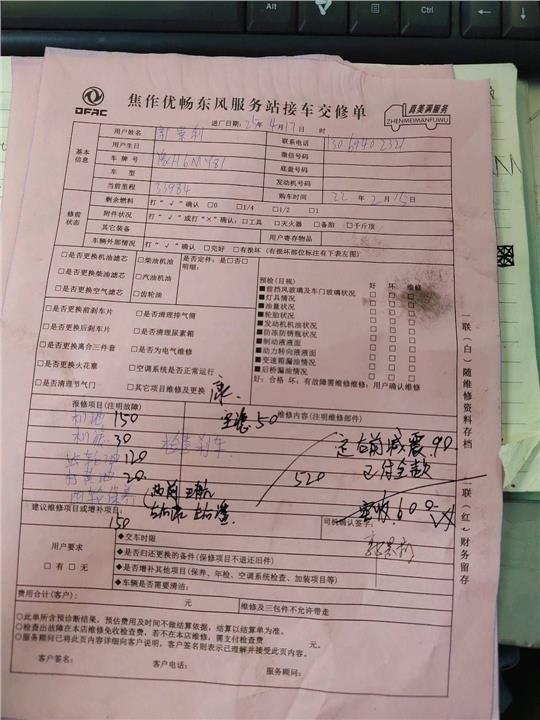 Alt
Ctrl
DFAC
焦作优畅东风服务站接车交修单
真美满服务
ZHENMEIMANFUWU
进厂日期：25年4月17日 时
基本信息
用户姓名
联系电话
用户生日
微信号码
车牌号 豫H6MY81
底盘号码
车型
发动机号码
当前里程 33984
购车时间 22年2月15日
修前状态
剩余燃料 打“√”确认 □0 □1/4 □1/2 □1
附件状况 打“√”或打“×”确认：□工具 □灭火器 □备胎 □千斤顶
其它装备 用户寄存物品
车辆外部情况 打“√”确认 □完好 □有损坏（有损坏部位标注有下表左图）
□是否更换机油滤芯 □柴油机油
□是否更换柴油滤芯 □汽油机油
□是否更换空气滤芯 □齿轮油
是否定件：是□否□
明细：
□是否更换前刹车片 □是否清理排气筒
□是否更换后刹车片 □是否清理尿素箱
□是否更换离合三件套 □是否为电气维修
□是否更换火花塞 □空调系统是否正常运行
□是否清理节气门 □其它项目维修及更换
预检（目视） 好 坏 维修
■前挡风玻璃及车门玻璃状况
■灯具情况
■油量状况
■轮胎状况
■发动机机油状况
■防冻防锈瓶状况
■制动液液面
■动力转向液液面
■变速箱漏油情况
■后桥漏油情况
好：合格 坏：有故障需维修维修：用户确认维修
报修项目（注明故障）
维修内容（注明维修部件）
50
机油 150
机滤 30
检查刹车
齿轮油 120
黄油 20
520
定右前减震 90
已付全款
实收 600
建议维修项目或增补项目：
150
司机确认签字：
用户要求
□有 □无
◆交车时限
◆是否归还更换的备件（保修项目不退还旧件）
◆是否增补其他项目（保养、年检、空调系统检查、加装项目等）
◆车辆是否需要清洁：
费用合计（客户）： 元 维修及三包件不允许带走
○此单所含预诊断结果，预估费用及时间不做结算依据，结算以结算单为准。
○检查出故障在本店维修免收检查费，若不在本店维修，需支付检查费 元。
○服务顾问已将此页内容详细向客户说明，客户签名则表示已理解并接受此页内容。
客户签名： 客户电话： 服务顾问：
一联（白）随维修资料存档
一联（红）财务留存